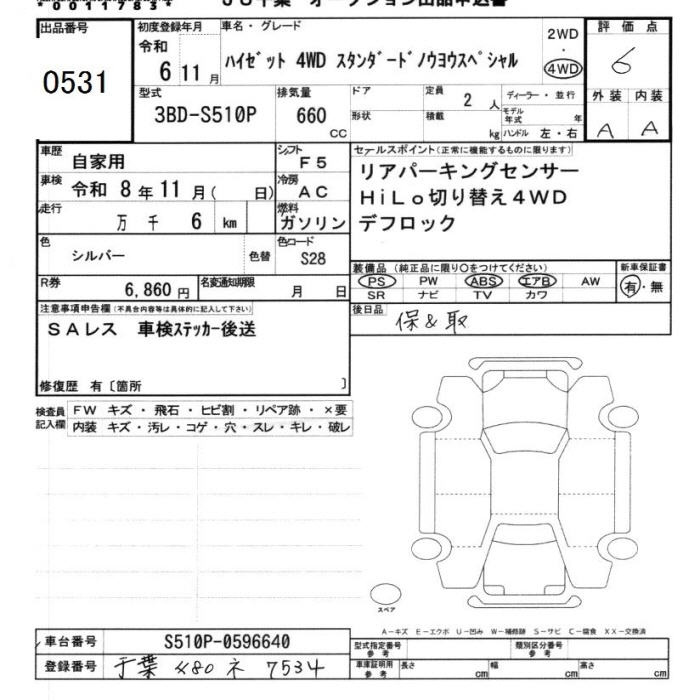 00117834
JU千葉 オークション出品申込書
出品番号
0531
初度登録年月
令和
6 11 月
車名・グレード
ハイゼット 4WD スタンダードノウヨウスペシャル
2WD
・
4WD
評価点
6
型式
3BD-S510P
排気量
660
CC
ドア
形状
定員
2 人
積載
kg
ディーラー・並行
モデル年式 年
ハンドル 左・右
外装 内装
A A
車歴
自家用
シフト
F5
車検
令和 8 年 11 月( 日)
冷房
AC
走行
万 千 6 km
燃料
ガソリン
色
シルバー
色替
色コード
S28
R券
6,860 円
名変通知期限
月 日
セールスポイント(正常に機能するものに限ります)
リアパーキングセンサー
HiLo切り替え4WD
デフロック
装備品 (純正品に限り○をつけてください)
PS PW ABS エアB AW
SR ナビ TV カワ
新車保証書
有・無
後日品
保&取
注意事項申告欄(不具合内容等は具体的に記入して下さい)
SAレス 車検ステッカー後送
修復歴 有〔箇所 〕
検査員記入欄
FW キズ・飛石・ヒビ割・リペア跡・×要
内装 キズ・汚レ・コゲ・穴・スレ・キレ・破レ
スペア
A−キズ E−エクボ U−凹み W−補修跡 S−サビ C−腐食 XX−交換済
車台番号
S510P-0596640
登録番号
千葉 480 ネ 7534
型式指定番号
参考
類別区分番号
参考
車庫証明用
参考
長さ cm 幅 cm 高さ cm